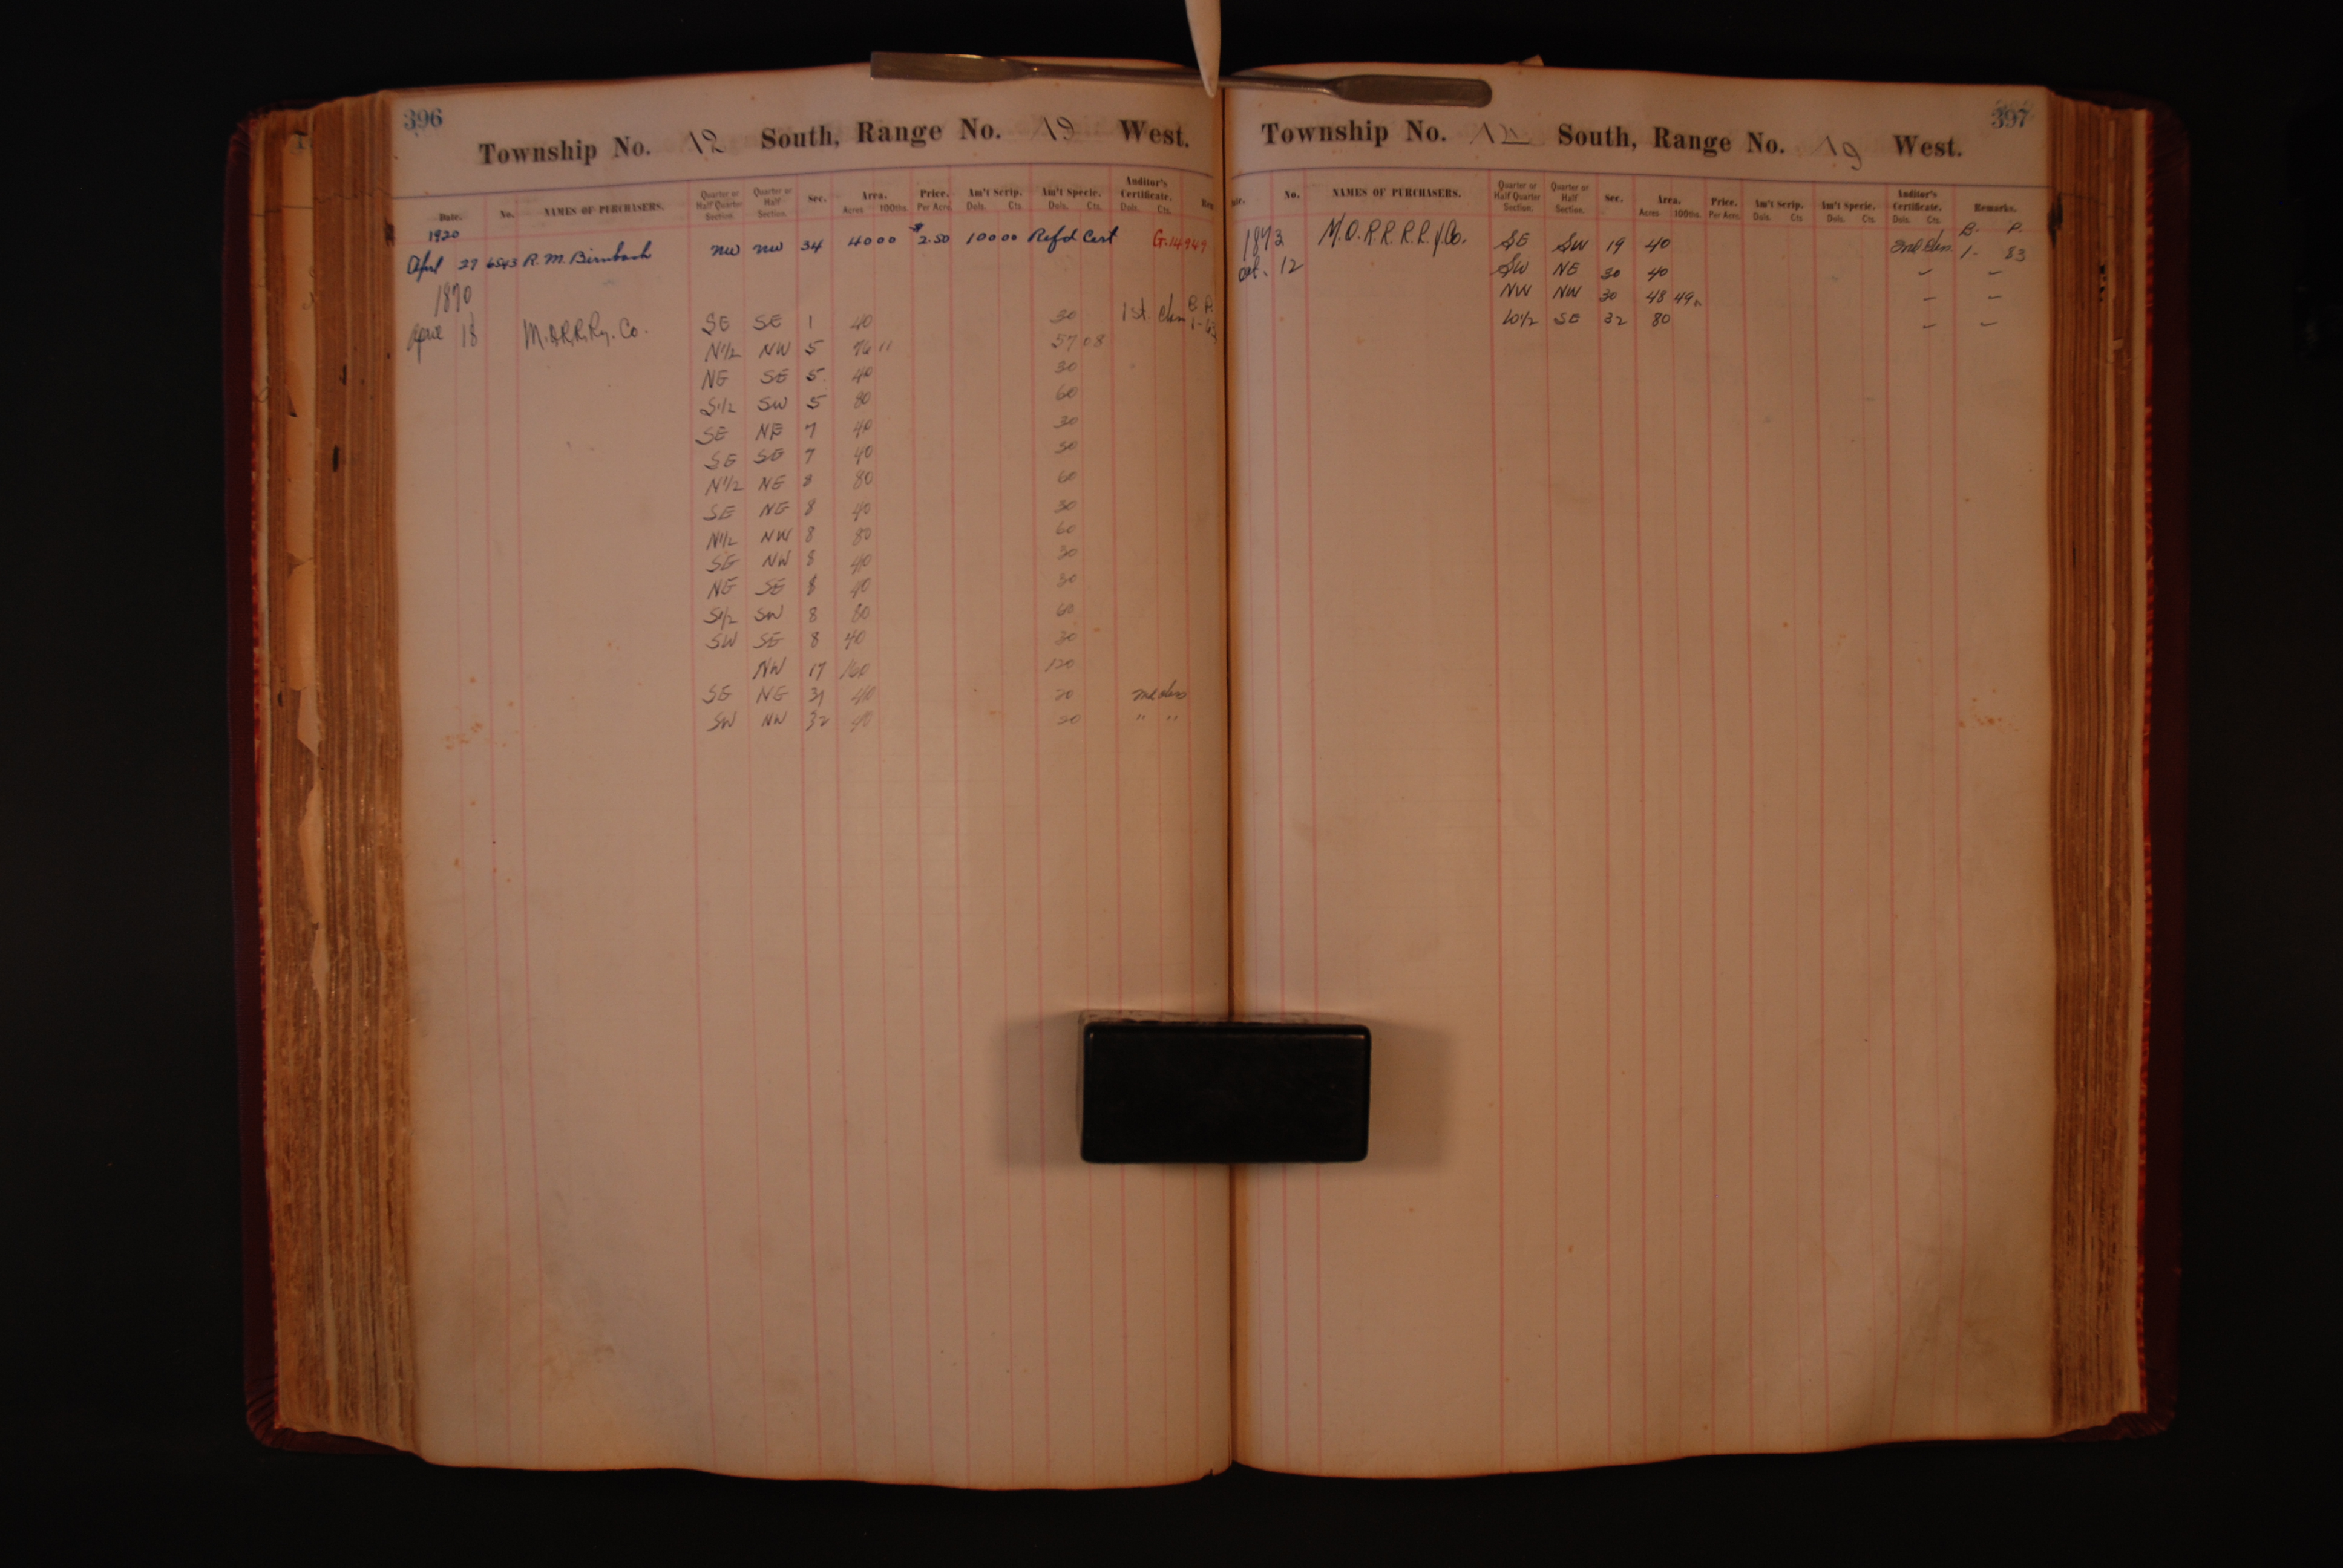 396
Township No. 12 South, Range No. 19 West.
Date. No. NAMES OF PURCHASERS. Quarter or Half Quarter Section. Quarter or Half Section. Sec. Area. Acres 100ths. Price. Per Acre. Am't Scrip. Dols. Cts. Am't Specie. Dols. Cts. Auditor's Certificate. Dols. Cts.
1920
April 27 6543 R. M. Birnbach NW NW 34 40 00 $2.50 100 00 Refd Cert G.14949
1870
April 18 M.O.R.R.Ry. Co. SE SE 1 40 30 1st. Class B P. 1-
N1/2 NW 5 76 11 57 08
NE SE 5 40 30
S1/2 SW 5 80 60
SE NE 7 40 30
SE SE 7 40 30
N1/2 NE 8 80 60
SE NE 8 40 30
N1/2 NW 8 80 60
SE NW 8 40 30
NE SE 8 40 30
S1/2 SW 8 80 60
SW SE 8 40 30
NW 17 160 120
SE NE 31 40 20 2nd class
SW NW 32 40 20 " "
397
Township No. 12 South, Range No. 19 West.
No. NAMES OF PURCHASERS. Quarter or Half Quarter Section. Quarter or Half Section. Sec. Area. Acres 100ths. Price. Per Acre. Am't Scrip. Dols. Cts. Am't Specie. Dols. Cts. Auditor's Certificate. Dols. Cts. Remarks.
B. P.
1873 M.O.R.R.R.R. Co. SE SW 19 40 2nd Class 1- 83
Oct. 12 SW NE 30 40 – –
NW NW 30 48 49 – –
W1/2 SE 32 80 – –